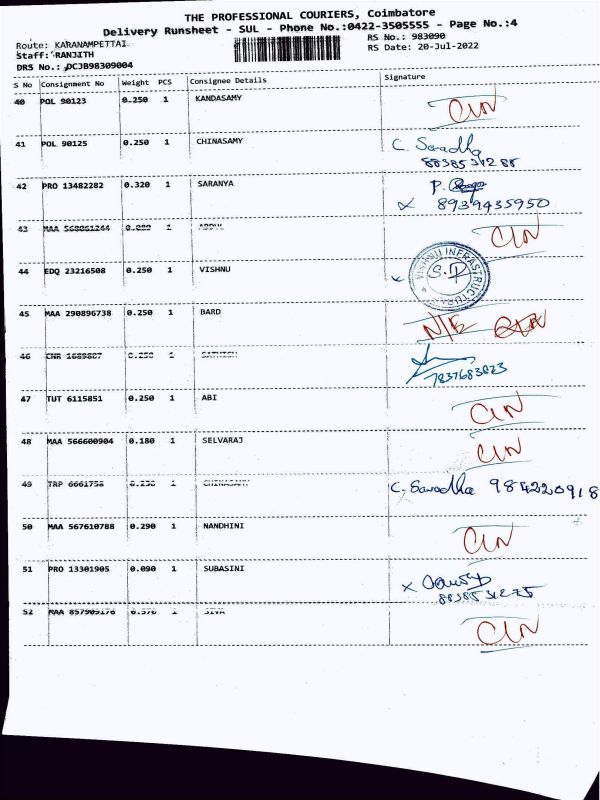 THE PROFESSIONAL COURIERS, Coimbatore
Delivery Runsheet - SUL - Phone No.:0422-3505555 - Page No.:4
Route: KARANAMPETTAI
Staff: RANJITH
DRS No.: DCJB98309004
RS No.: 983090
RS Date: 20-Jul-2022
S No Consignment No Weight PCS Consignee Details Signature
40 POL 90123 0.250 1 KANDASAMY CLN
41 POL 90125 0.250 1 CHINASAMY C. Saradha
8838531285
42 PRO 13482282 0.320 1 SARANYA P.
x 8939435950
43 MAA 568061244 1 ABDUL CLN
44 EDQ 23216508 0.250 1 VISHNU
VISHNU INFRASTRUCTURE
S.P
45 MAA 290896738 0.250 1 BARD N/E
46 CNR 1689887 0.250 1 SATHISH
7837683823
47 TUT 6115851 0.250 1 ABI CLN
48 MAA 566600904 0.180 1 SELVARAJ CLN
49 TRP 6661758 0.250 1 CHINASAMY C. Saradha 984220918
50 MAA 567610788 0.290 1 NANDHINI CLN
51 PRO 13301905 0.090 1 SUBASINI x
8838531275
52 MAA 857909176 0.570 1 SIVA CLN